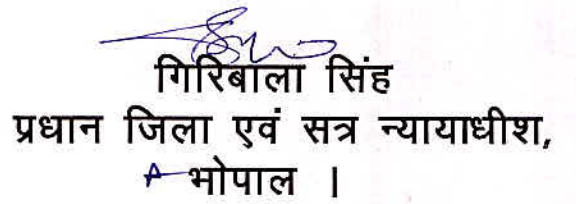 गिरिबाला सिंह
प्रधान जिला एवं सत्र न्यायाधीश,
भोपाल |